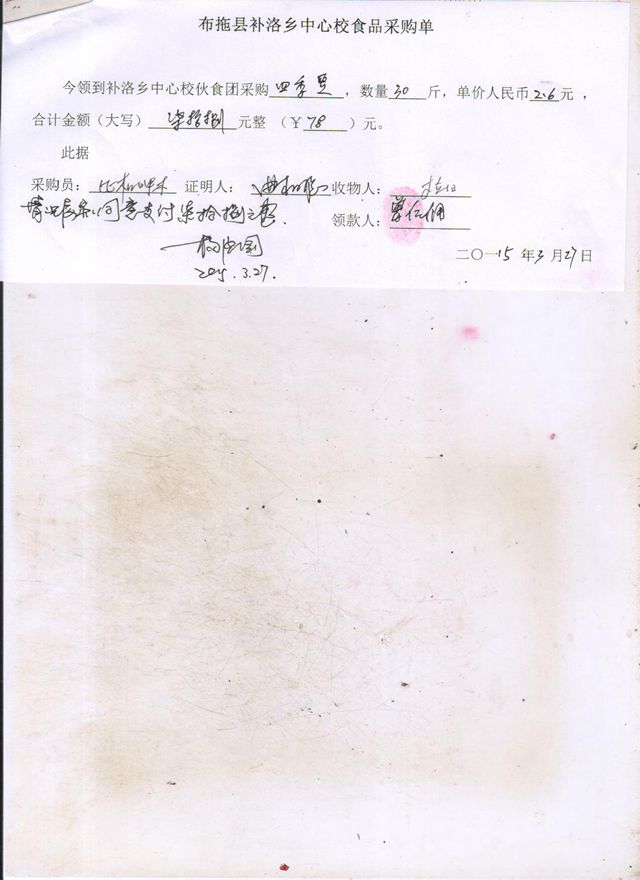 布拖县补洛乡中心校食品采购单
今领到补洛乡中心校伙食团采购四季豆，数量30斤，单价人民币2.6元，
合计金额（大写）柒拾捌元整（￥78）元。
此据
采购员： 证明人： 收物人：
情况属实，同意支付柒拾捌元整. 领款人：
2015.3.27.
二〇一15年3月27日